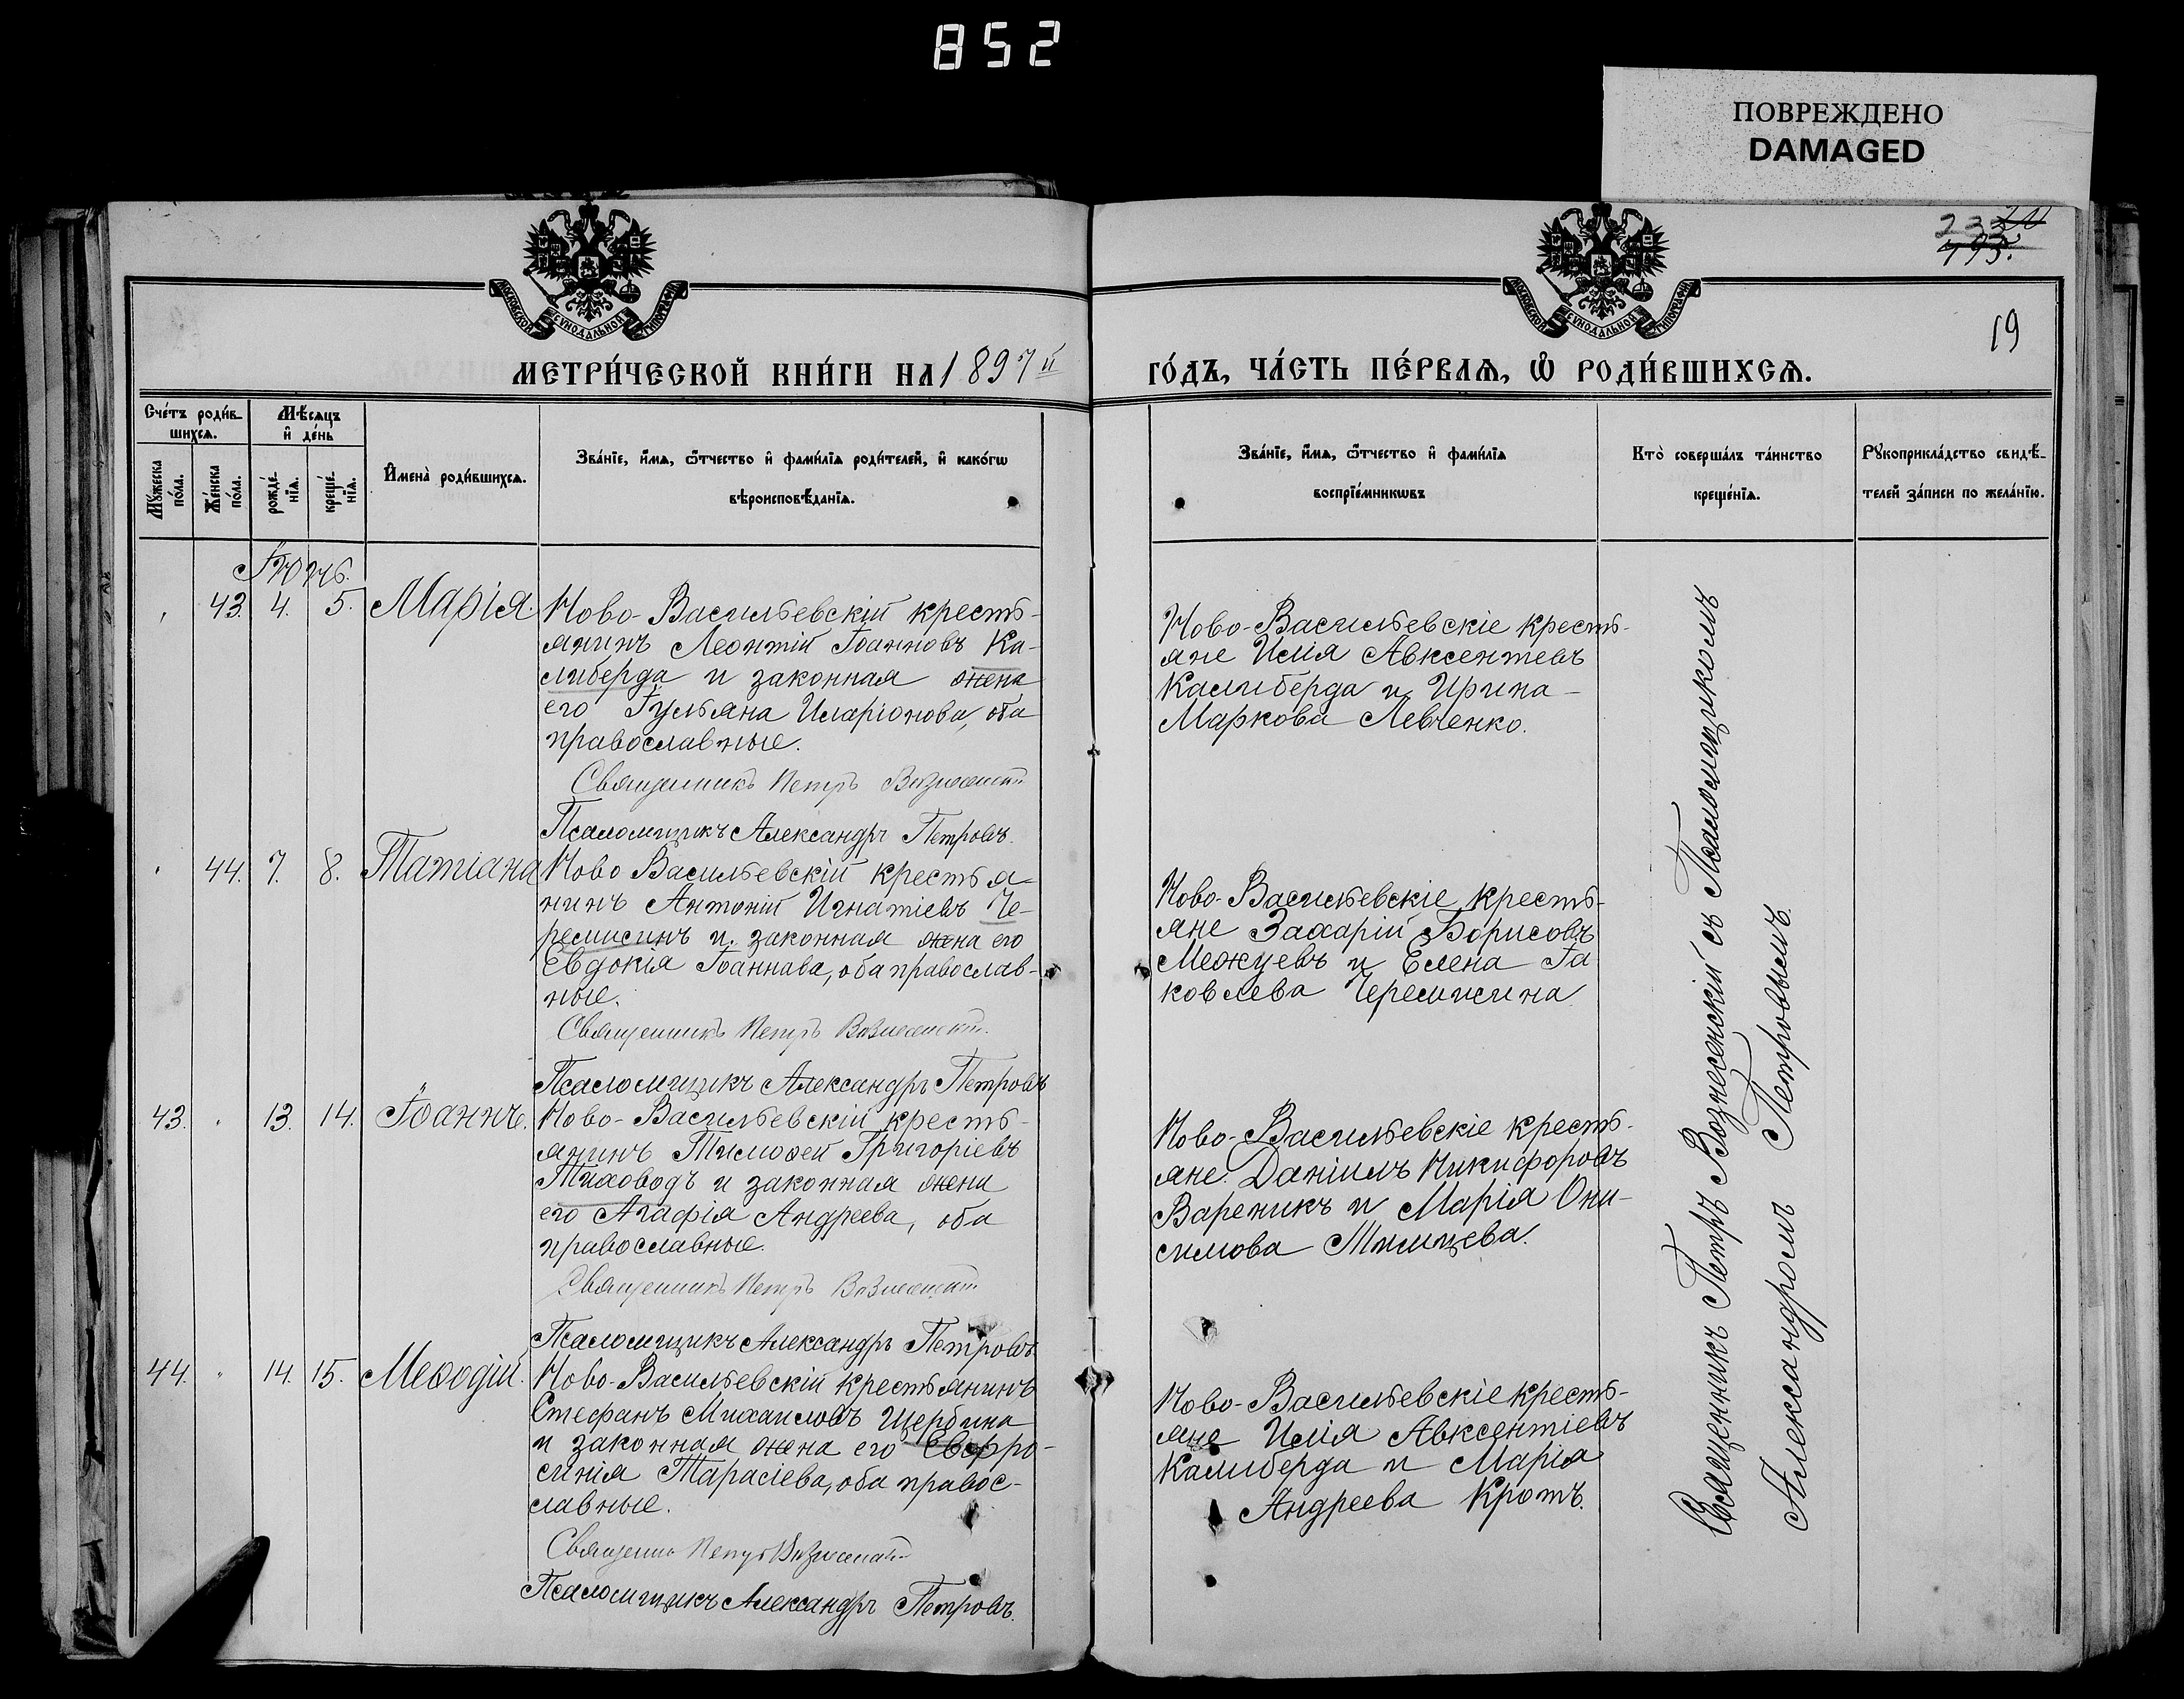 852
ПОВРЕЖДЕНО
DAMAGED
233
493.
19
МОСКОВСКОЙ СѴНОДАЛЬНОЙ ТИПОГРАФІИ
МОСКОВСКОЙ СѴНОДАЛЬНОЙ ТИПОГРАФІИ
МЕТРИ́ЧЕСКОЙ КНИ́ГИ НА 1897й
ГО́ДЪ, ЧА́СТЬ ПЕ́РВАѦ, Ѡ҆ РОДИ́ВШИХСѦ.
Сче́тъ роди́в-
шихсѧ.
Мꙋ́жеска
по́ла.
Же́нска
по́ла.
Мѣ́сѧцъ
и҆ де́нь
рожде́-
нїѧ.
креще́-
нїѧ.
И҆мена̀ роди́вшихсѧ.
Зва́нїе, и҆́мѧ, ѻ҆́тчество и҆ фами́лїѧ роди́телей, и҆ како́гѡ
вѣроисповѣ́данїѧ.
Зва́нїе, и҆́мѧ, ѻ҆́тчество и҆ фами́лїѧ
воспрїе́мникѡвъ
Кто̀ соверша́лъ та́инство
креще́нїѧ.
Рꙋкоприкла́дство свидѣ́-
телей за́писи по жела́нїю.
Іюнь.
43. 4. 5. Марія. Ново-Васильевскій кресть-
янинъ Леонтій Іоанновъ Ка-
либерда и законная жена
его Іульяна Иларіонова, оба
православные.
Священникъ Петръ Вознесенскій
Псаломщикъ Александръ Петровъ.
Ново-Васильевскіе кресть-
яне Илія Авксентіевъ
Калиберда и Ирина
Маркова Левченко.
44. 7. 8. Татіана Ново Васильевскій крестья-
нинъ Антоній Игнатіевъ Че-
ремисинъ и законная жена его
Евдокія Іоаннова, оба православ-
ные.
Священникъ Петръ Вознесенскій.
Псаломщикъ Александръ Петровъ
Ново-Васильевскіе кресть-
яне Захарій Борисовъ
Межуевъ и Елена Іа
ковлева Черемисина
43. 13. 14. Іоаннъ. Ново-Васильевскій кресть-
янинъ Тимоѳей Григоріевъ
Тиховодъ и законная жена
его Агафія Андреева, оба
православные.
Священникъ Петръ Вознесенскій
Псаломщикъ Александръ Петровъ
Ново-Васильевскіе кресть-
яне Даніилъ Никифоровъ
Вареникъ и Марія Они-
симова
44. 14. 15. Меѳодій. Ново-Васильевскій крестьянинъ
Стефанъ Михаиловъ Щербина
и законная жена его Евфро-
синія Тарасіева, оба правос-
славные.
Священникъ Петръ Вознесенскій
Псаломщикъ Александръ Петровъ.
Ново-Васильевскіе кресть-
яне Илія Авксентіевъ
Калиберда и Марія
Андреева Кротъ.
Священникъ Петръ Вознесенскій съ Псаломщикомъ
Александромъ Петровымъ